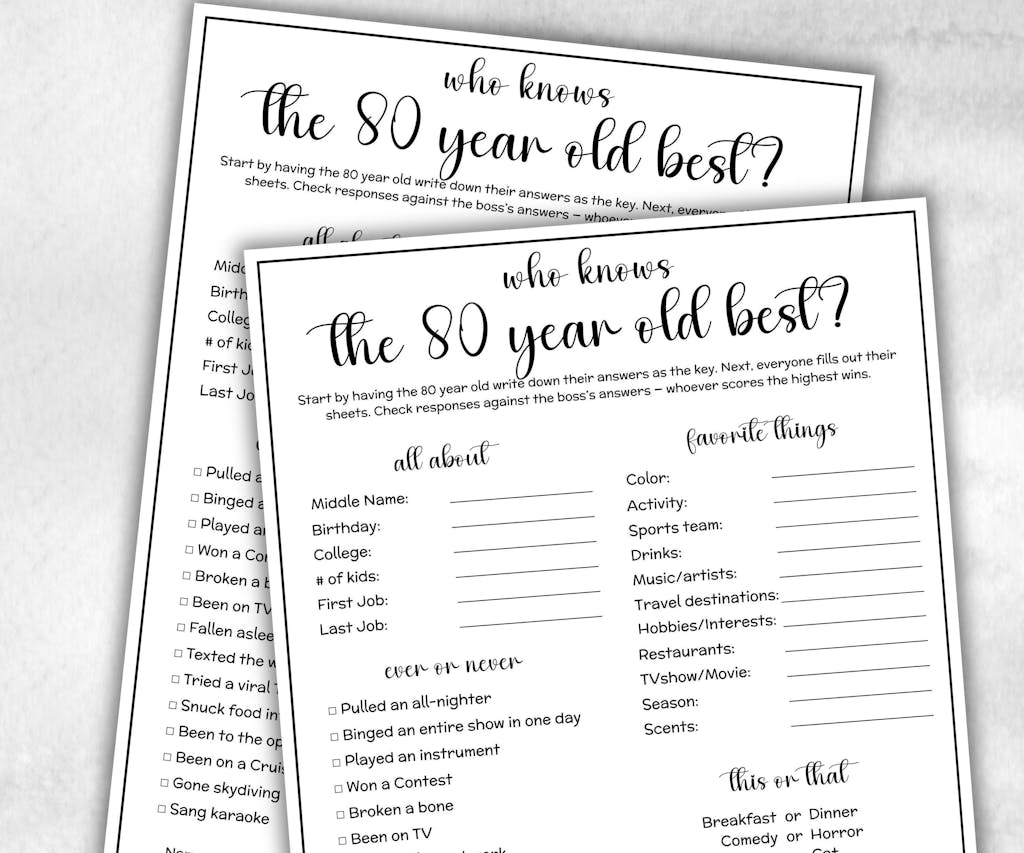 who knows
the 80 year old best?
Start by having the 80 year old write down their answers as the key. Next,
sheets. Check responses against the boss's answers –
all
# of
First
Last
Pulled
Binged
Played
Won a
Broken a
Been on TV
Fallen
Texted the
Tried a viral
Snuck food
Been to the
Been on a
Gone skydiving
Sang karaoke
who knows
the 80 year old best?
Start by having the 80 year old write down their answers as the key. Next, everyone fills out their
sheets. Check responses against the boss's answers – whoever scores the highest wins.
all about
Middle Name:
Birthday:
College:
# of kids:
First Job:
Last Job:
ever or never
Pulled an all-nighter
Binged an entire show in one day
Played an instrument
Won a Contest
Broken a bone
Been on TV
favorite things
Color:
Activity:
Sports team:
Drinks:
Music/artists:
Travel destinations:
Hobbies/Interests:
Restaurants:
TVshow/Movie:
Season:
Scents:
this or that
Breakfast or Dinner
Comedy or Horror